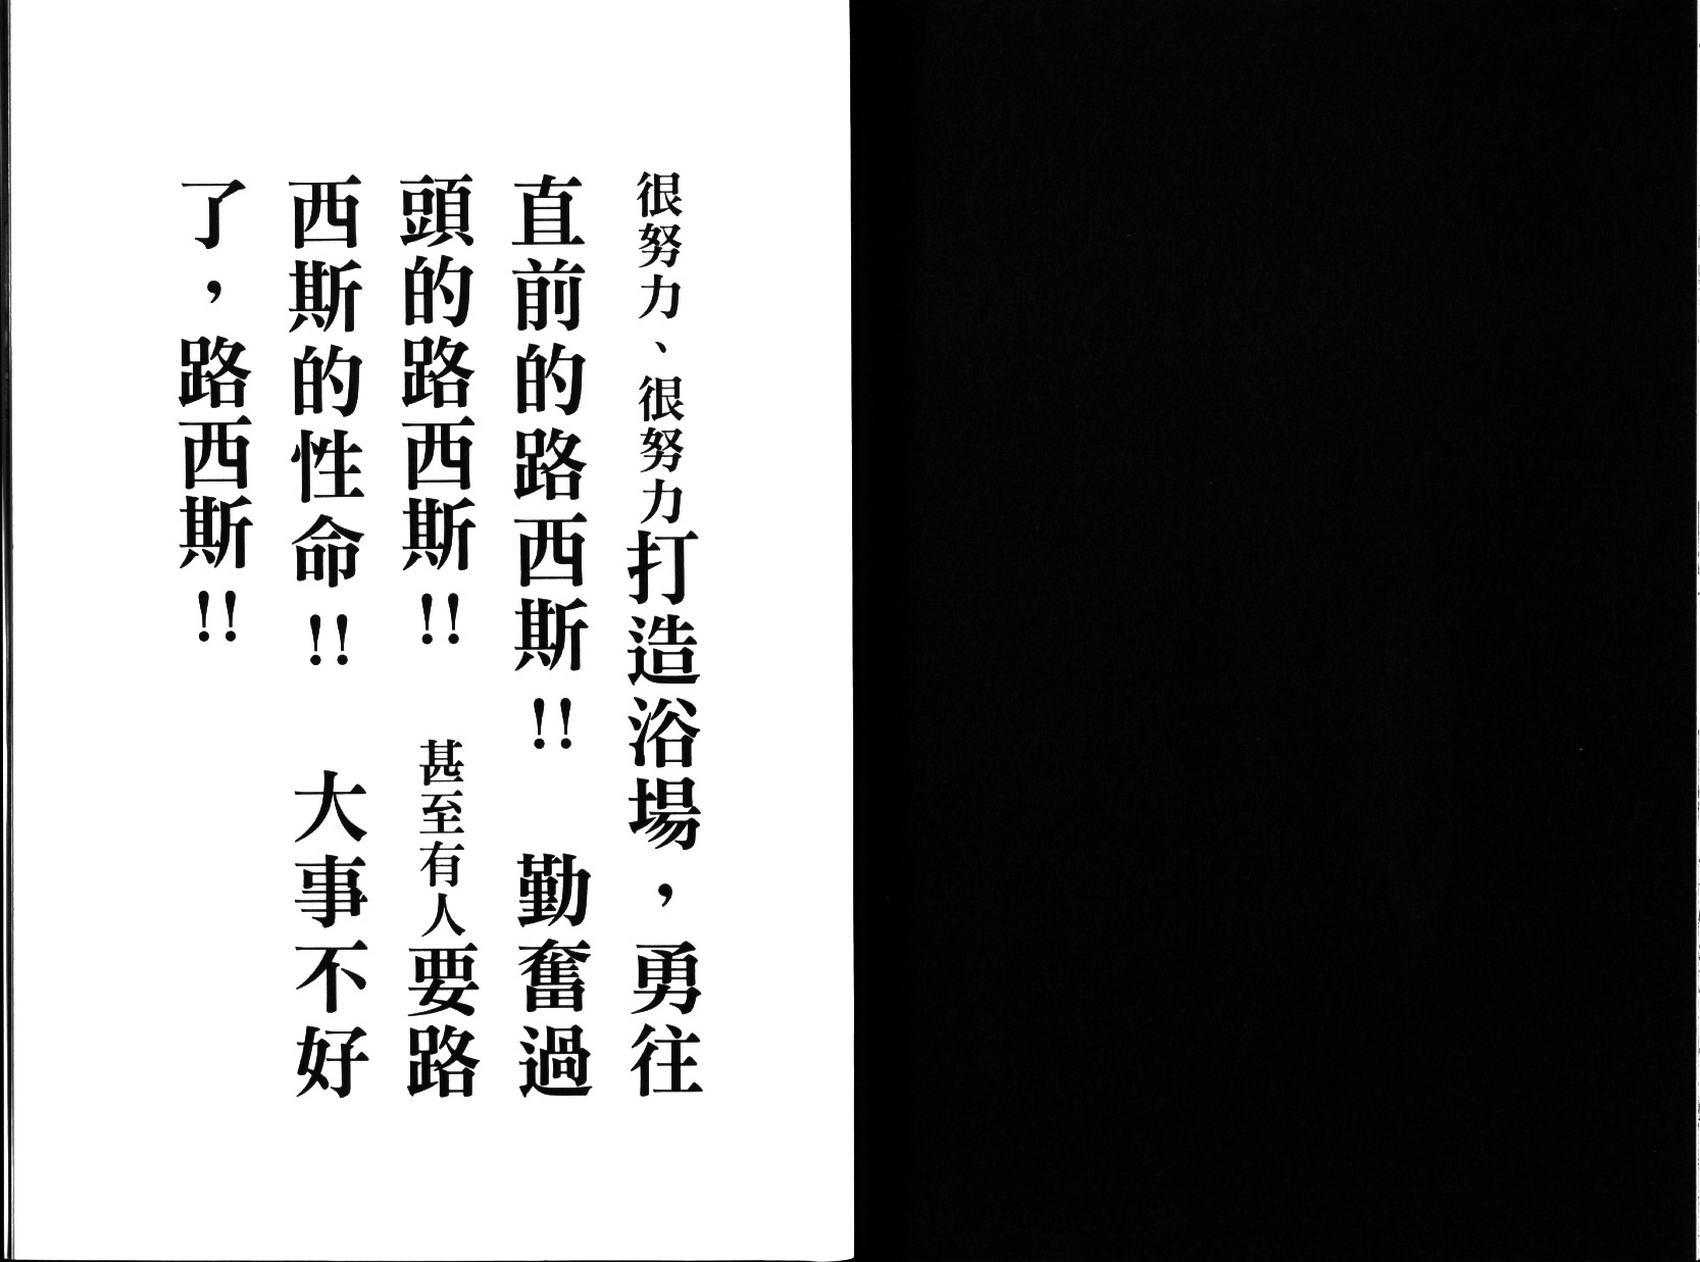 很努力、很努力打造浴場，勇往
直前的路西斯！！　勤奮過
頭的路西斯！！　甚至有人要路
西斯的性命！！　大事不好
了，路西斯！！